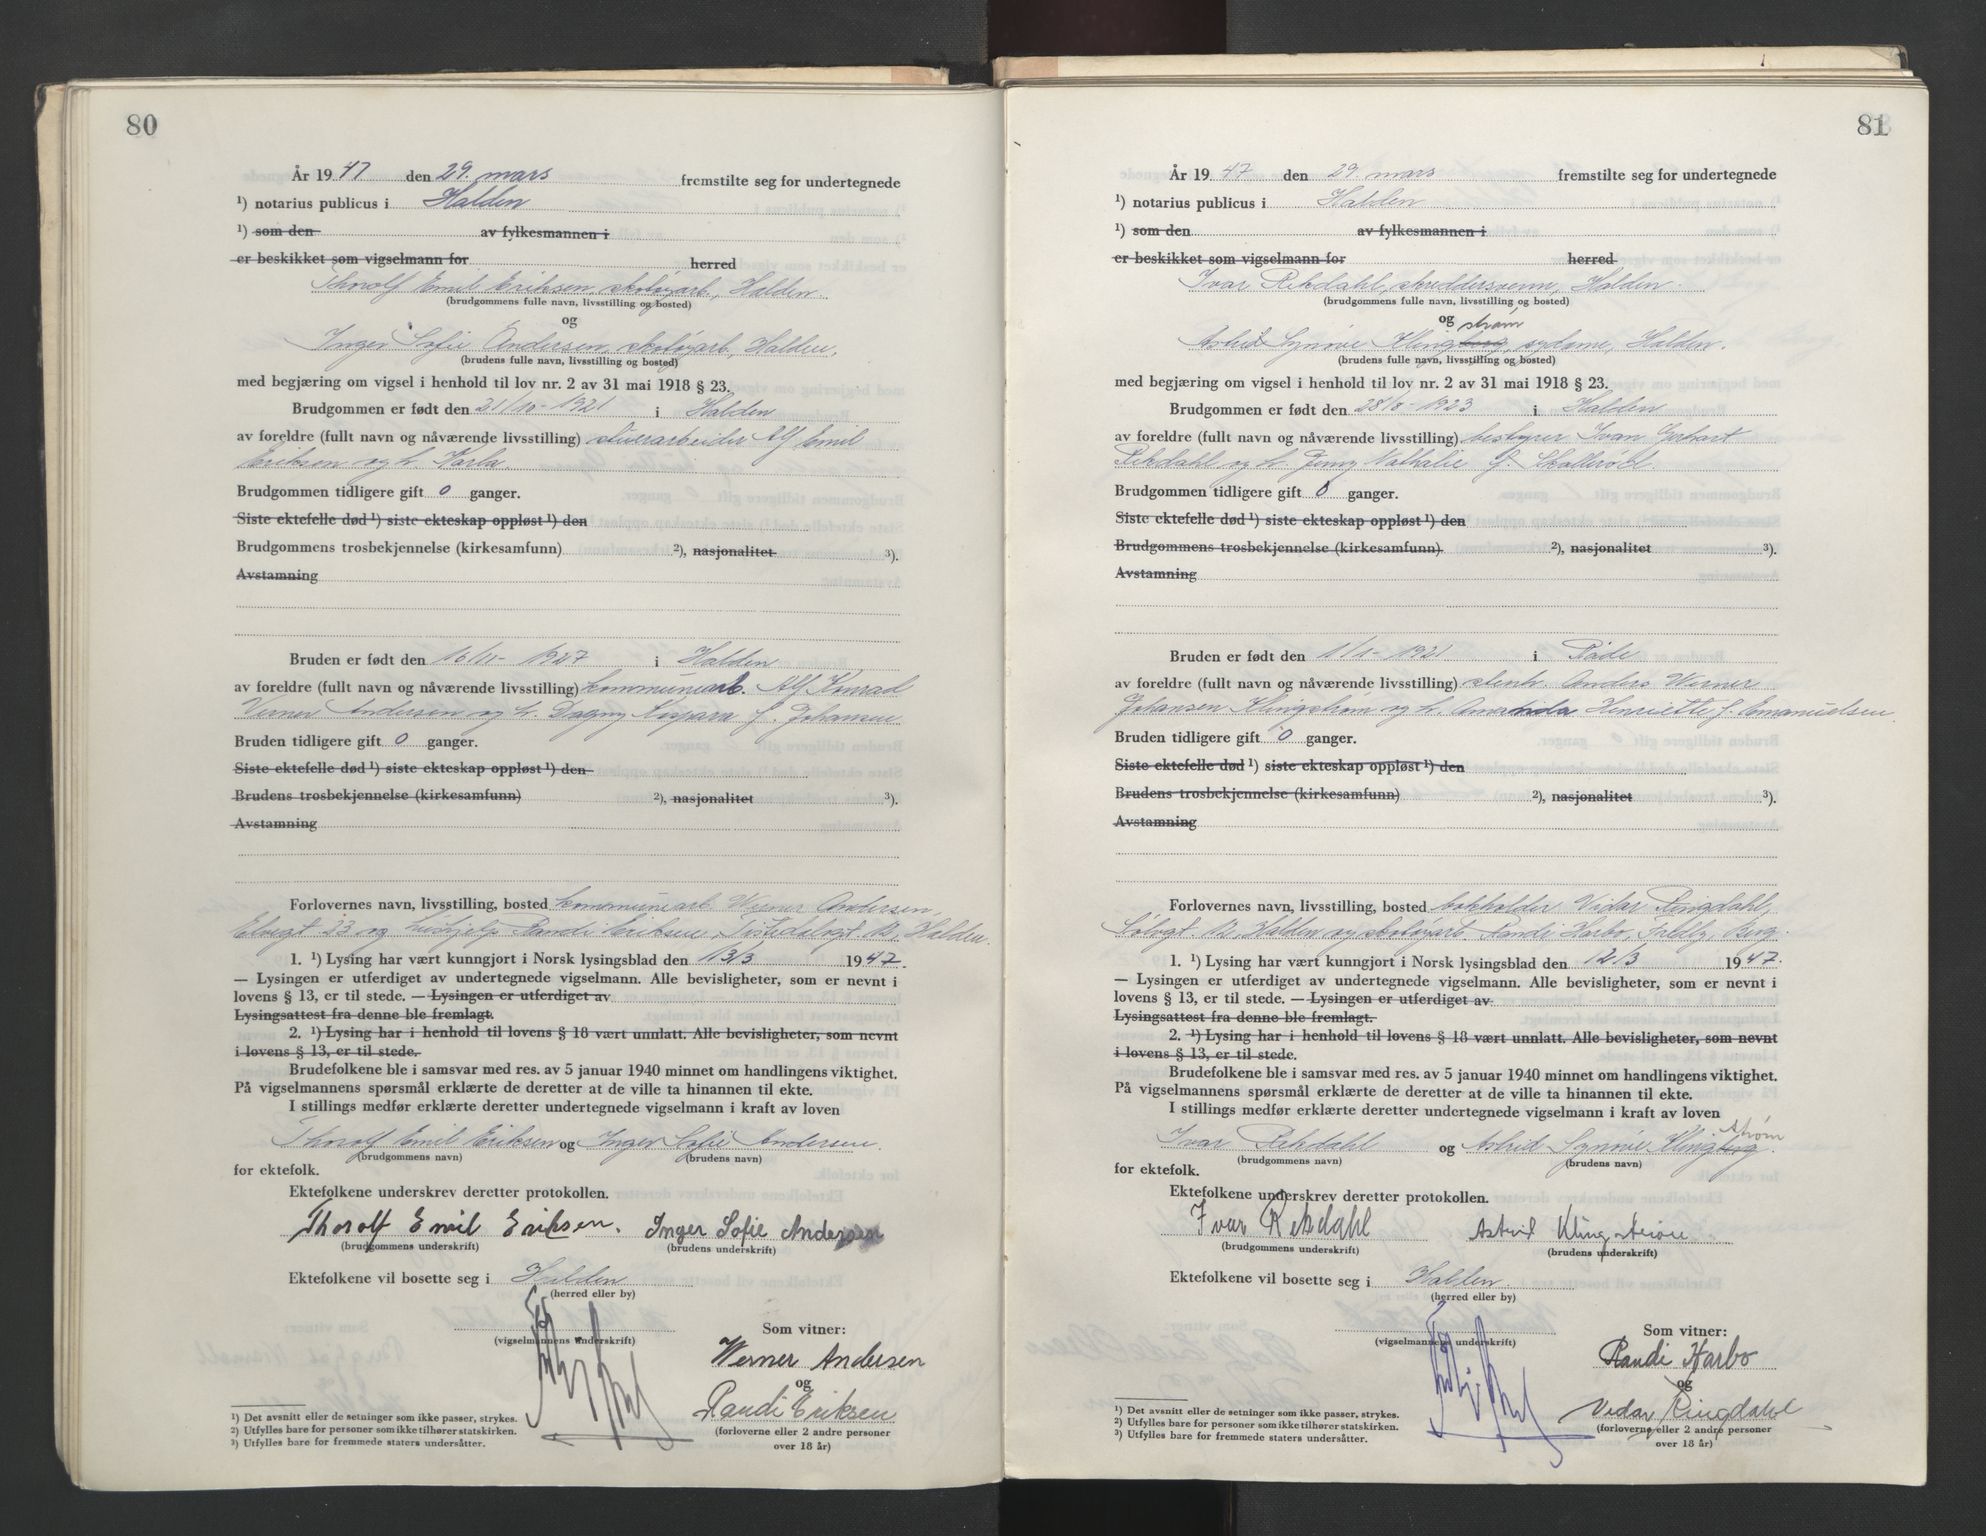 80
År 1947 den 29. mars fremstilte seg for undertegnede
¹) notarius publicus i Halden
¹) som den av fylkesmannen i
er beskikket som vigselmann for herred
Thorolf Emil Eriksen, skotøyarb., Halden.
(brudgommens fulle navn, livsstilling og bosted)
og
Inger Sofie Andersen, skotøyarb., Halden.
(brudens fulle navn, livsstilling og bosted)
med begjæring om vigsel i henhold til lov nr. 2 av 31 mai 1918 § 23.
Brudgommen er født den 21/10-1921 i Halden
av foreldre (fullt navn og nåværende livsstilling) stuerarbeider Alf Emil
Eriksen og h. Karla.
Brudgommen tidligere gift 0 ganger.
Siste ektefelle død ¹) siste ekteskap oppløst ¹) den
Brudgommens trosbekjennelse (kirkesamfunn) ²), nasjonalitet ³).
Avstamning
Bruden er født den 16/11-1927 i Halden
av foreldre (fullt navn og nåværende livsstilling) kommunearb. Alf Konrad
Verner Andersen og h. Dagny Kaspara f. Johansen
Bruden tidligere gift 0 ganger.
Siste ektefelle død ¹) siste ekteskap oppløst ¹) den
Brudens trosbekjennelse (kirkesamfunn) ²), nasjonalitet ³).
Avstamning
Forlovernes navn, livsstilling, bosted kommunearb. Werner Andersen,
23 og hushjelp Randi Eriksen, Tistedalsgt. Halden.
1. ¹) Lysing har vært kunngjort i Norsk lysingsblad den 13/3 1947.
— Lysingen er utferdiget av undertegnede vigselmann. Alle bevisligheter, som er nevnt i
lovens § 13, er til stede. — Lysingen er utferdiget av
Lysingsattest fra denne ble fremlagt.
2. ¹) Lysing har i henhold til lovens § 18 vært unnlatt. Alle bevisligheter, som er nevnt
i lovens § 13, er til stede.
Brudefolkene ble i samsvar med res. av 5 januar 1940 minnet om handlingens viktighet.
På vigselmannens spørsmål erklærte de deretter at de ville ta hinannen til ekte.
I stillings medfør erklærte deretter undertegnede vigselmann i kraft av loven
Thorolf Emil Eriksen og Inger Sofie Andersen.
(brudgommens navn) (brudens navn)
for ektefolk.
Ektefolkene underskrev deretter protokollen.
Thorolf Emil Eriksen. Inger Sofie Andersen
(brudgommens underskrift) (brudens underskrift)
Ektefolkene vil bosette seg i Halden
(herred eller by)
(vigselmannens underskrift)
Som vitner:
Werner Andersen
og
Randi Eriksen
(forloverne eller 2 andre personer
over 18 år)
¹) Det avsnitt eller de setninger som ikke passer, strykes.
²) Utfylles bare for personer som ikke tilhører statskirken.
³) Utfylles bare for fremmede staters undersåtter.
81
År 1947 den 29. mars fremstilte seg for undertegnede
¹) notarius publicus i Halden
¹) som den av fylkesmannen i
er beskikket som vigselmann for herred
Ivar Rekdahl, skreddersvenn, Halden.
(brudgommens fulle navn, livsstilling og bosted)
og
strøm
Astrid Synnøve Klingberg, sydame, Halden.
(brudens fulle navn, livsstilling og bosted)
med begjæring om vigsel i henhold til lov nr. 2 av 31 mai 1918 § 23.
Brudgommen er født den 28/8-1923 i Halden
av foreldre (fullt navn og nåværende livsstilling) bestyrer Ivan
Rekdahl og h. Jenny Nathalie f. Skallerød.
Brudgommen tidligere gift 0 ganger.
Siste ektefelle død ¹) siste ekteskap oppløst ¹) den
Brudgommens trosbekjennelse (kirkesamfunn) ²), nasjonalitet ³).
Avstamning
Bruden er født den 1/1-1921 i Råde
av foreldre (fullt navn og nåværende livsstilling) stenh. Anders Werner
Johansen Klingstrøm og h. Amanda Henriette f. Emanuelsen.
Bruden tidligere gift 0 ganger.
Siste ektefelle død ¹) siste ekteskap oppløst ¹) den
Brudens trosbekjennelse (kirkesamfunn) ²), nasjonalitet ³).
Avstamning
Forlovernes navn, livsstilling, bosted bokholder Vidar Ringdahl,
Halden og skotøyarb. Randi Harbo, Berg.
1. ¹) Lysing har vært kunngjort i Norsk lysingsblad den 12/3 1947.
— Lysingen er utferdiget av undertegnede vigselmann. Alle bevisligheter, som er nevnt i
lovens § 13, er til stede. — Lysingen er utferdiget av
Lysingsattest fra denne ble fremlagt.
2. ¹) Lysing har i henhold til lovens § 18 vært unnlatt. Alle bevisligheter, som er nevnt
i lovens § 13, er til stede.
Brudefolkene ble i samsvar med res. av 5 januar 1940 minnet om handlingens viktighet.
På vigselmannens spørsmål erklærte de deretter at de ville ta hinannen til ekte.
I stillings medfør erklærte deretter undertegnede vigselmann i kraft av loven
strøm
Ivar Rekdahl og Astrid Synnøve Klingberg.
(brudgommens navn) (brudens navn)
for ektefolk.
Ektefolkene underskrev deretter protokollen.
Ivar Rekdahl Astrid Klingstrøm
(brudgommens underskrift) (brudens underskrift)
Ektefolkene vil bosette seg i Halden.
(herred eller by)
(vigselmannens underskrift)
Som vitner:
Randi Harbo
og
Vidar Ringdahl
(forloverne eller 2 andre personer
over 18 år)
¹) Det avsnitt eller de setninger som ikke passer, strykes.
²) Utfylles bare for personer som ikke tilhører statskirken.
³) Utfylles bare for fremmede staters undersåtter.